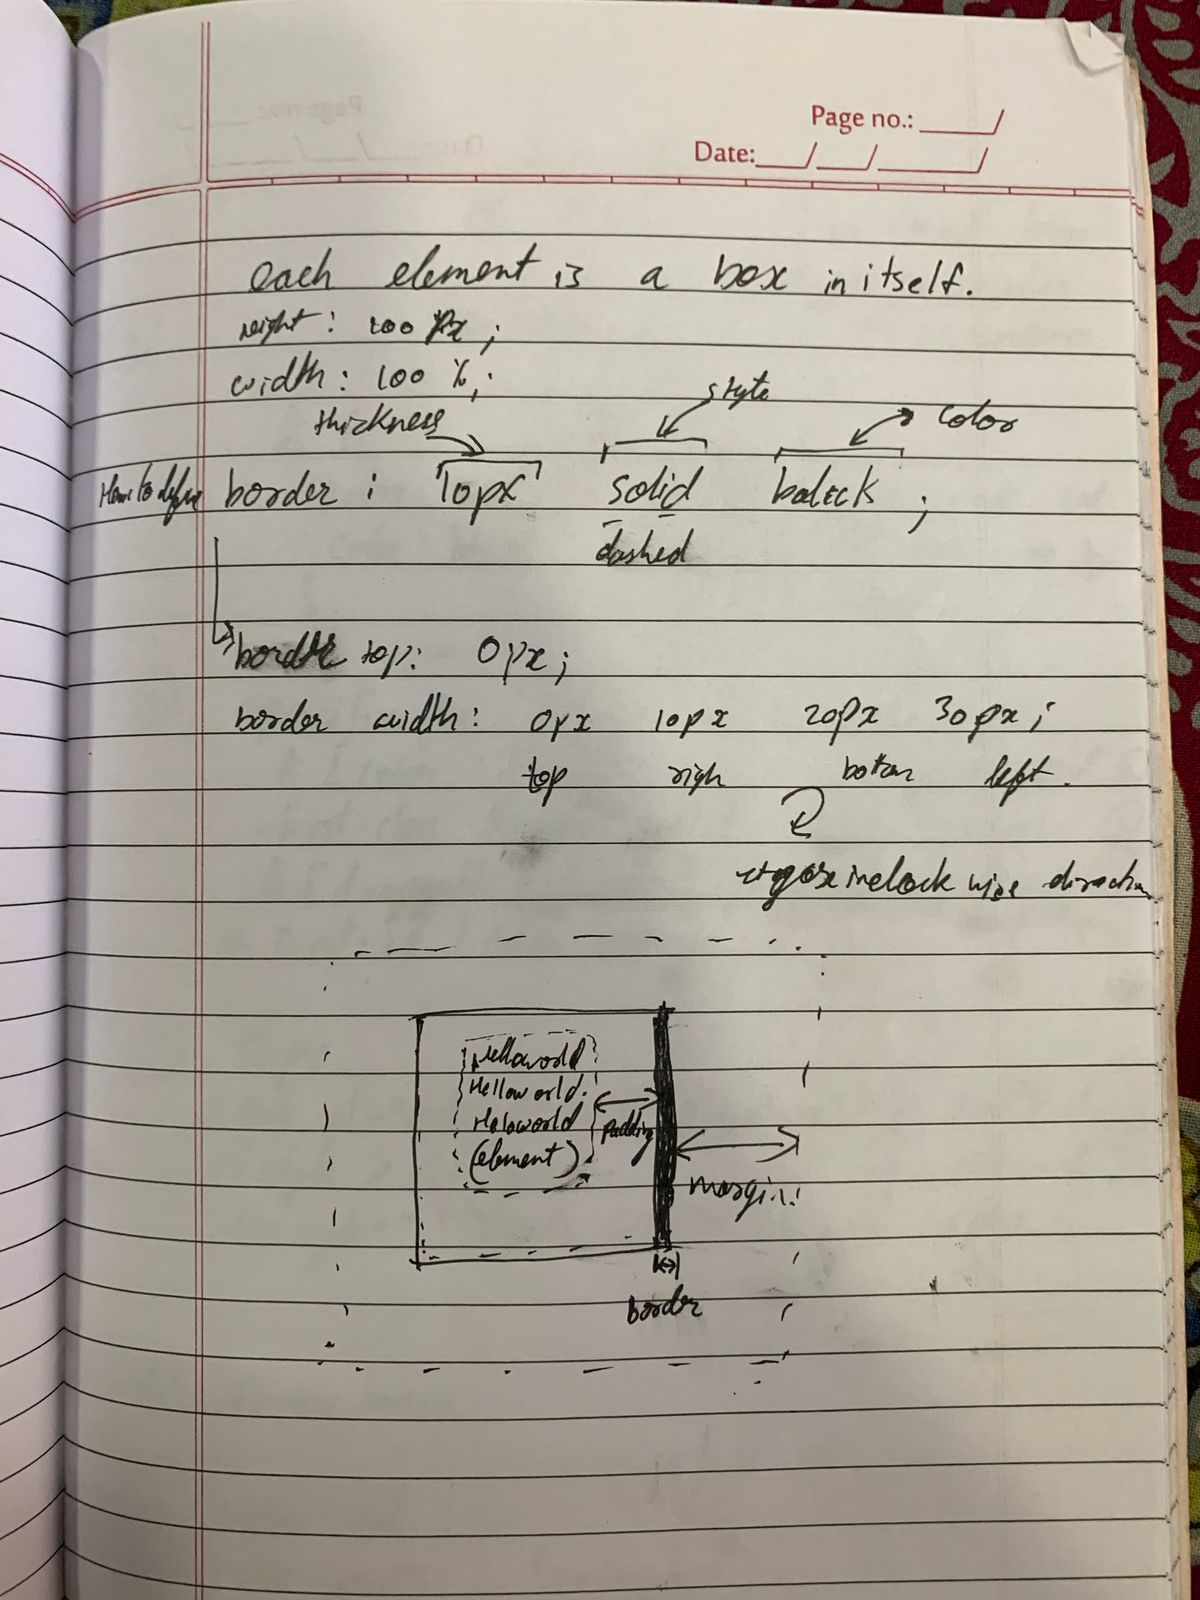 Page no.:
Date:
each element is a box in itself.
height: 100 px;
width: 100 %;
style
thickness
color
How to define border : 10px solid balack ;
dashed
border top: 0px;
border width: 0px 10px 20px 30px;
top righ bottom left.
it goes in clock wise direction
Helloworld
Helloworld.
Heloworld
(element)
Padding
margin.
border